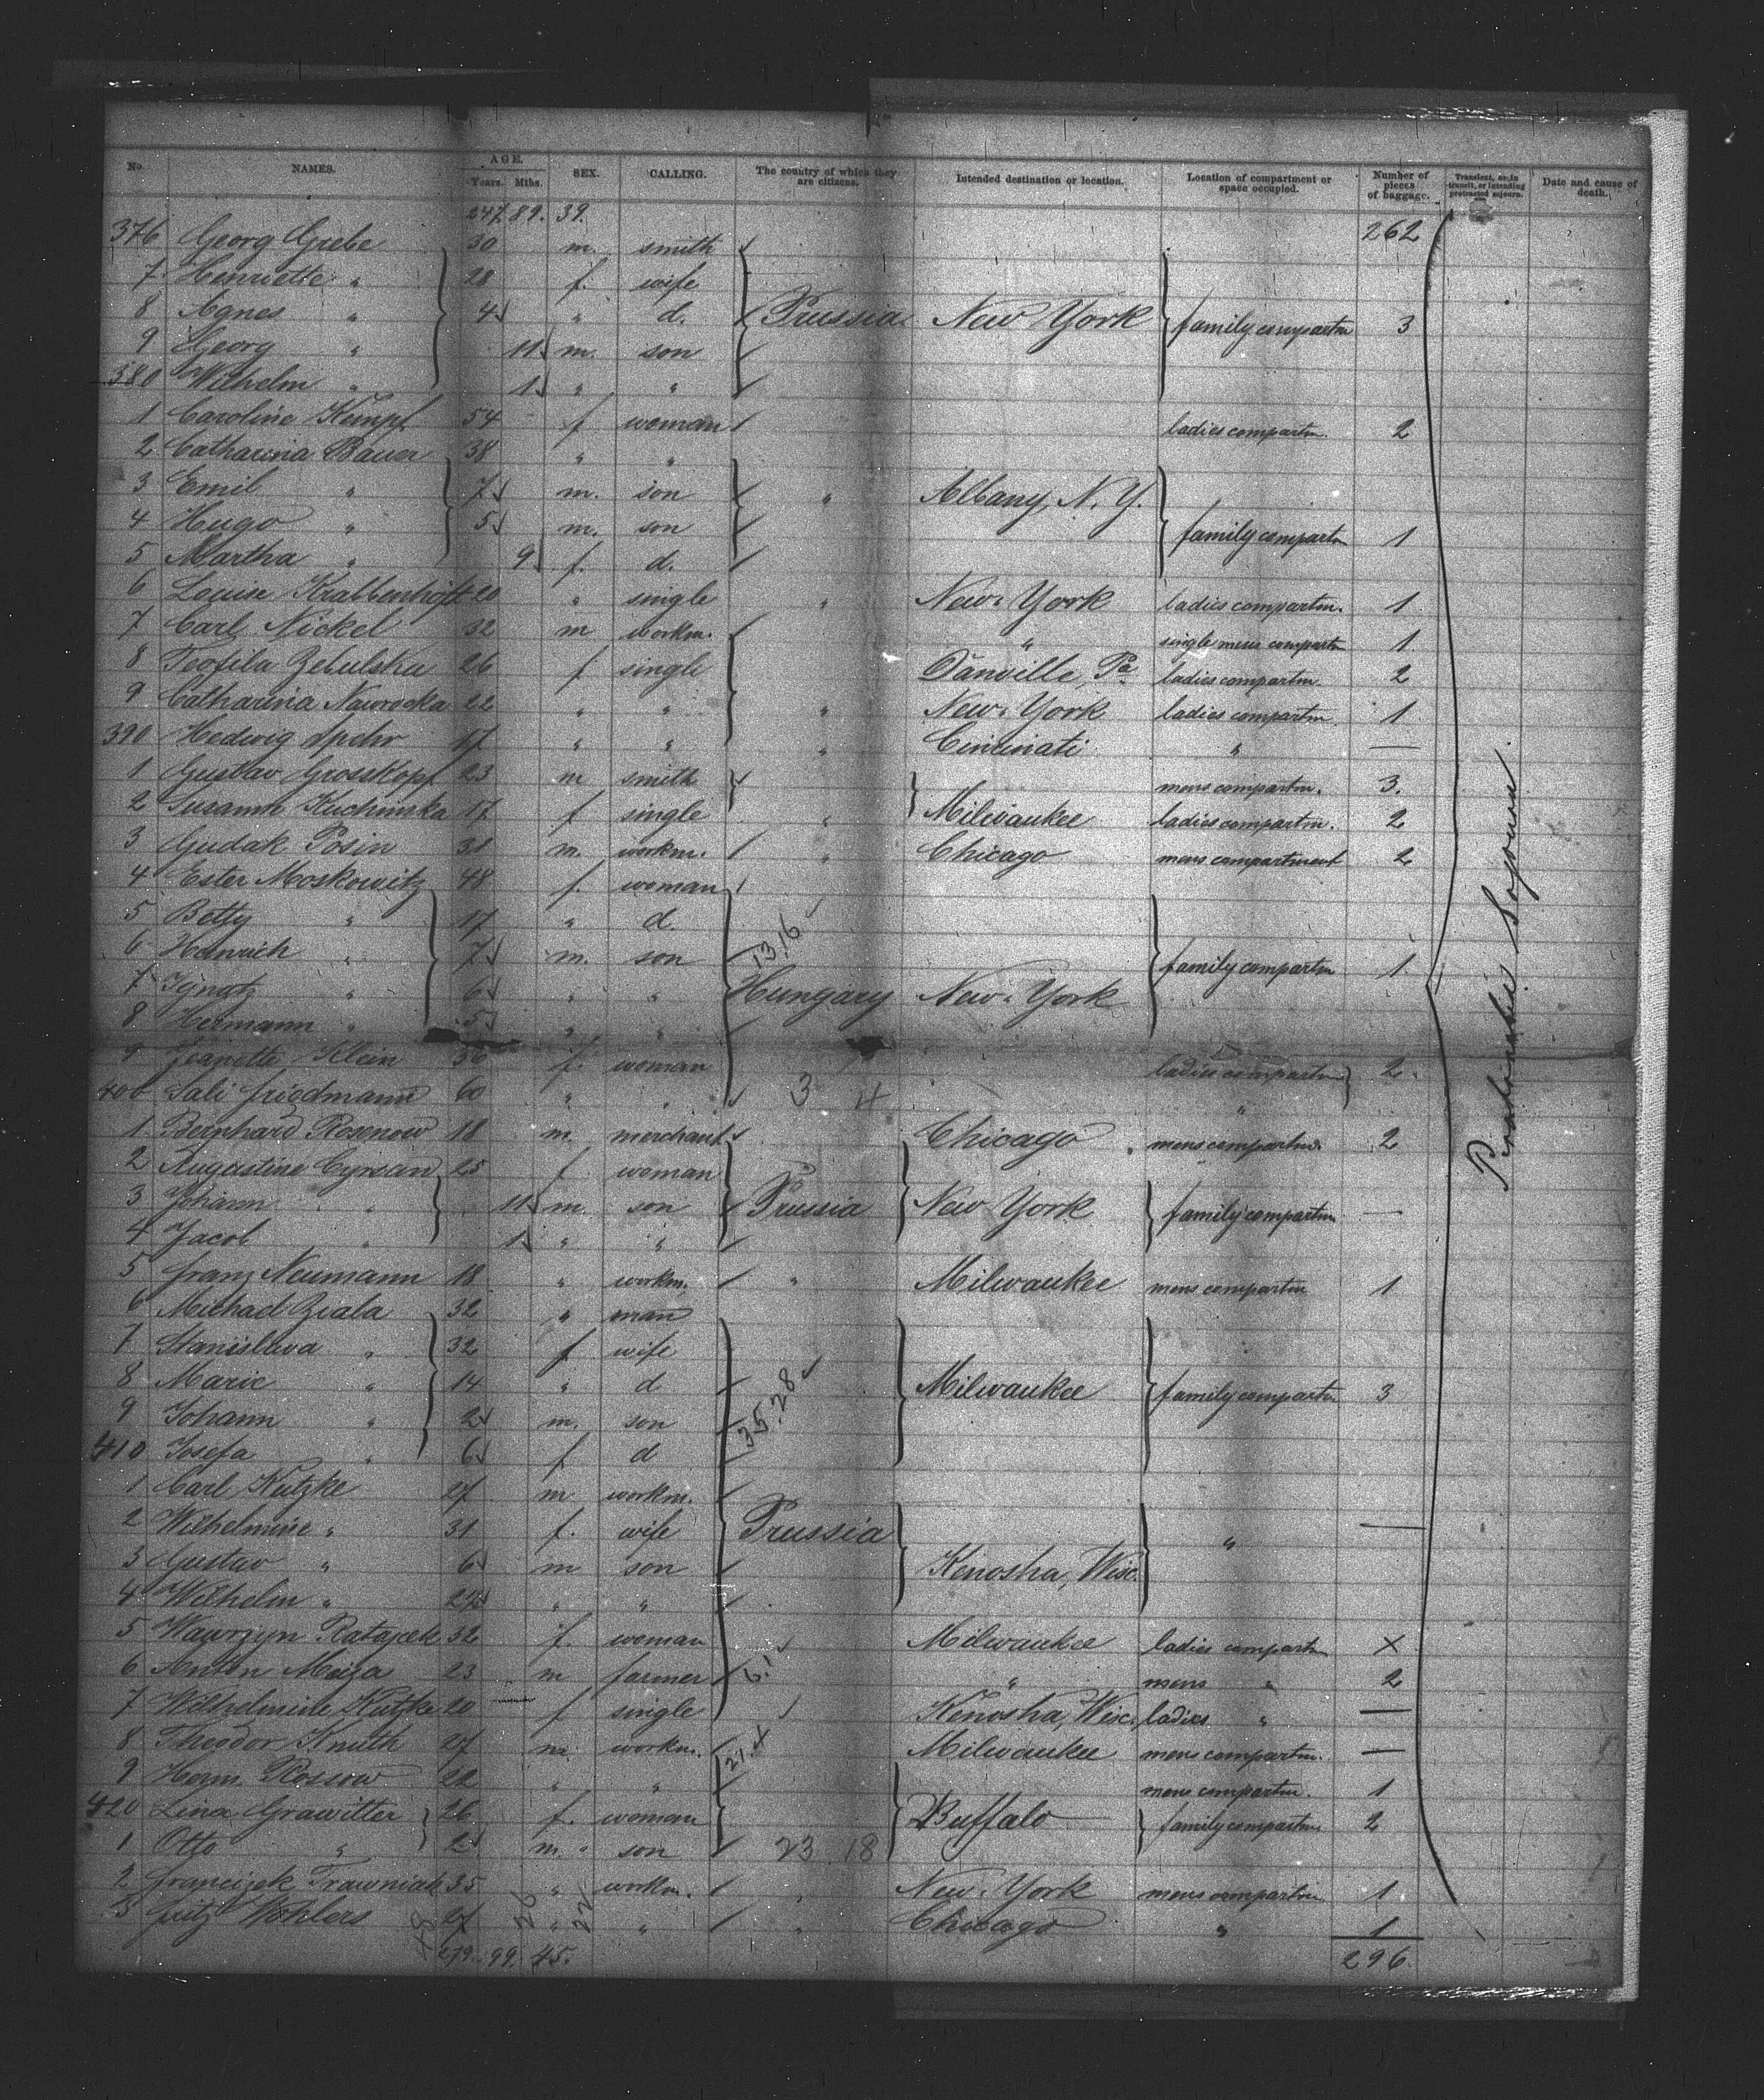 No. NAMES. AGE. Years. Mths. SEX. CALLING. The country of which they are citizens. Intended destination or location. Location of compartment or space occupied. Number of pieces of baggage. Transient, or in transit, or intending protracted sojourn. Date and cause of death.
247. 89. 39. 262
376 Georg Grebe 30 m. smith
7 Henriette " 28 f. wife
8 Agnes " 4 " d. Prussia New York family compartm 3
9 Georg " 11 m. son
380 Wilhelm " 1 " "
1 Caroline Kempf 54 f woman ladies compartm. 2
2 Catharina Bauer 38 " "
3 Emil " 7 m. son " Albany, N. Y.
4 Hugo " 5 m. son family compartm 1
5 Martha " 9 f. d.
6 Louise Krabbenhöft 20 " single " New-York ladies compartm. 1
7 Carl Nickel 32 m workm. " single mens compartm 1
8 Teofila Zebulska 26 f single Danville, Pa ladies compartm. 2
9 Catharina Nawrocka 22 " " " New-York ladies compartm. 1
390 Hedwig Spehr 17 " " " Cincinati " —
1 Gustav Grosskopf 23 m smith mens compartm. 3.
2 Susann Kuchinska 17 f single " Milwaukee ladies compartm. 2
3 Gudak Posin 31 m. workm. " Chicago mens compartment 2
4 Ester Moskowitz 48 f. woman
5 Betty " 17 " d.
6 Heinrich " 7 m. son 13.16 family compartm 1
7 Ignatz " 6 " " Hungary New-York
8 Hermann " 5 " "
9 Jeanette Klein 56 f. woman ladies compartm 2
400 Sali Friedmann 60 " " 3 4 "
1 Bernhard Rosenow 18 m. merchant Chicago mens compartm. 2
2 Augustine Cyrsan 25 f. woman
3 Johann " 11 m. son Prussia New York family compartm —
4 Jacob " 1 " "
5 Franz Neumann 18 " workm. " Milwaukee mens compartm 1
6 Michael Biala 32 " man
7 Stanislava " 32 f wife
8 Marie " 14 " d Milwaukee family compartm 3
9 Johann " 2 m. son 35.28
410 Josefa " 6 f d
1 Carl Kutzke 27 m workm.
2 Wilhelmine " 31 f. wife Prussia " —
3 Gustav " 6 m son Kenosha, Wisc.
4 Wilhelm " " "
5 Wawrzyn Ratajcek 32 f. woman Milwaukee ladies compartm X
6 Anton 23 m farmer 6.1 " mens " 2
7 Wilhelmine Kutzke 20 f single Kenosha, Wisc. ladies " —
8 Theodor Knuth 27 m. workm. 21.4 Milwaukee mens compartm. —
9 Herm. Rossow 22 " " mens compartm. 1
420 Lina Grawitter 26 f. woman Buffalo family compartm 2
1 Otto " 2 m. son 23 18
2 Franciszek Trawniak 35 " workm. " New-York mens compartm 1
3 Fritz Wohlers 27 " " " Chicago " 1
48 26 22
279. 99. 45. 296.
Protracted Sojourn